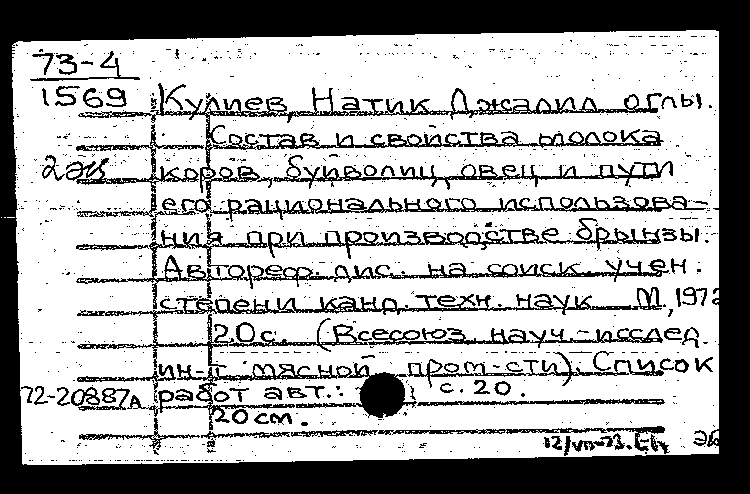 73-4
1569
Кулиев, Натик Джалил оглы.
Состав и свойства молока
2 экз
коров, буйволиц, овец и пути
его рационального использова-
ния при производстве брынзы.
Автореф. дис. на соиск. учен.
степени канд. техн. наук М., 1972
20с. (Всесоюз. науч.-исслед.
ин-т мясной пром-сти). Список
72-20887А работ авт.: с. 20.
20 см.
12/VII-73.